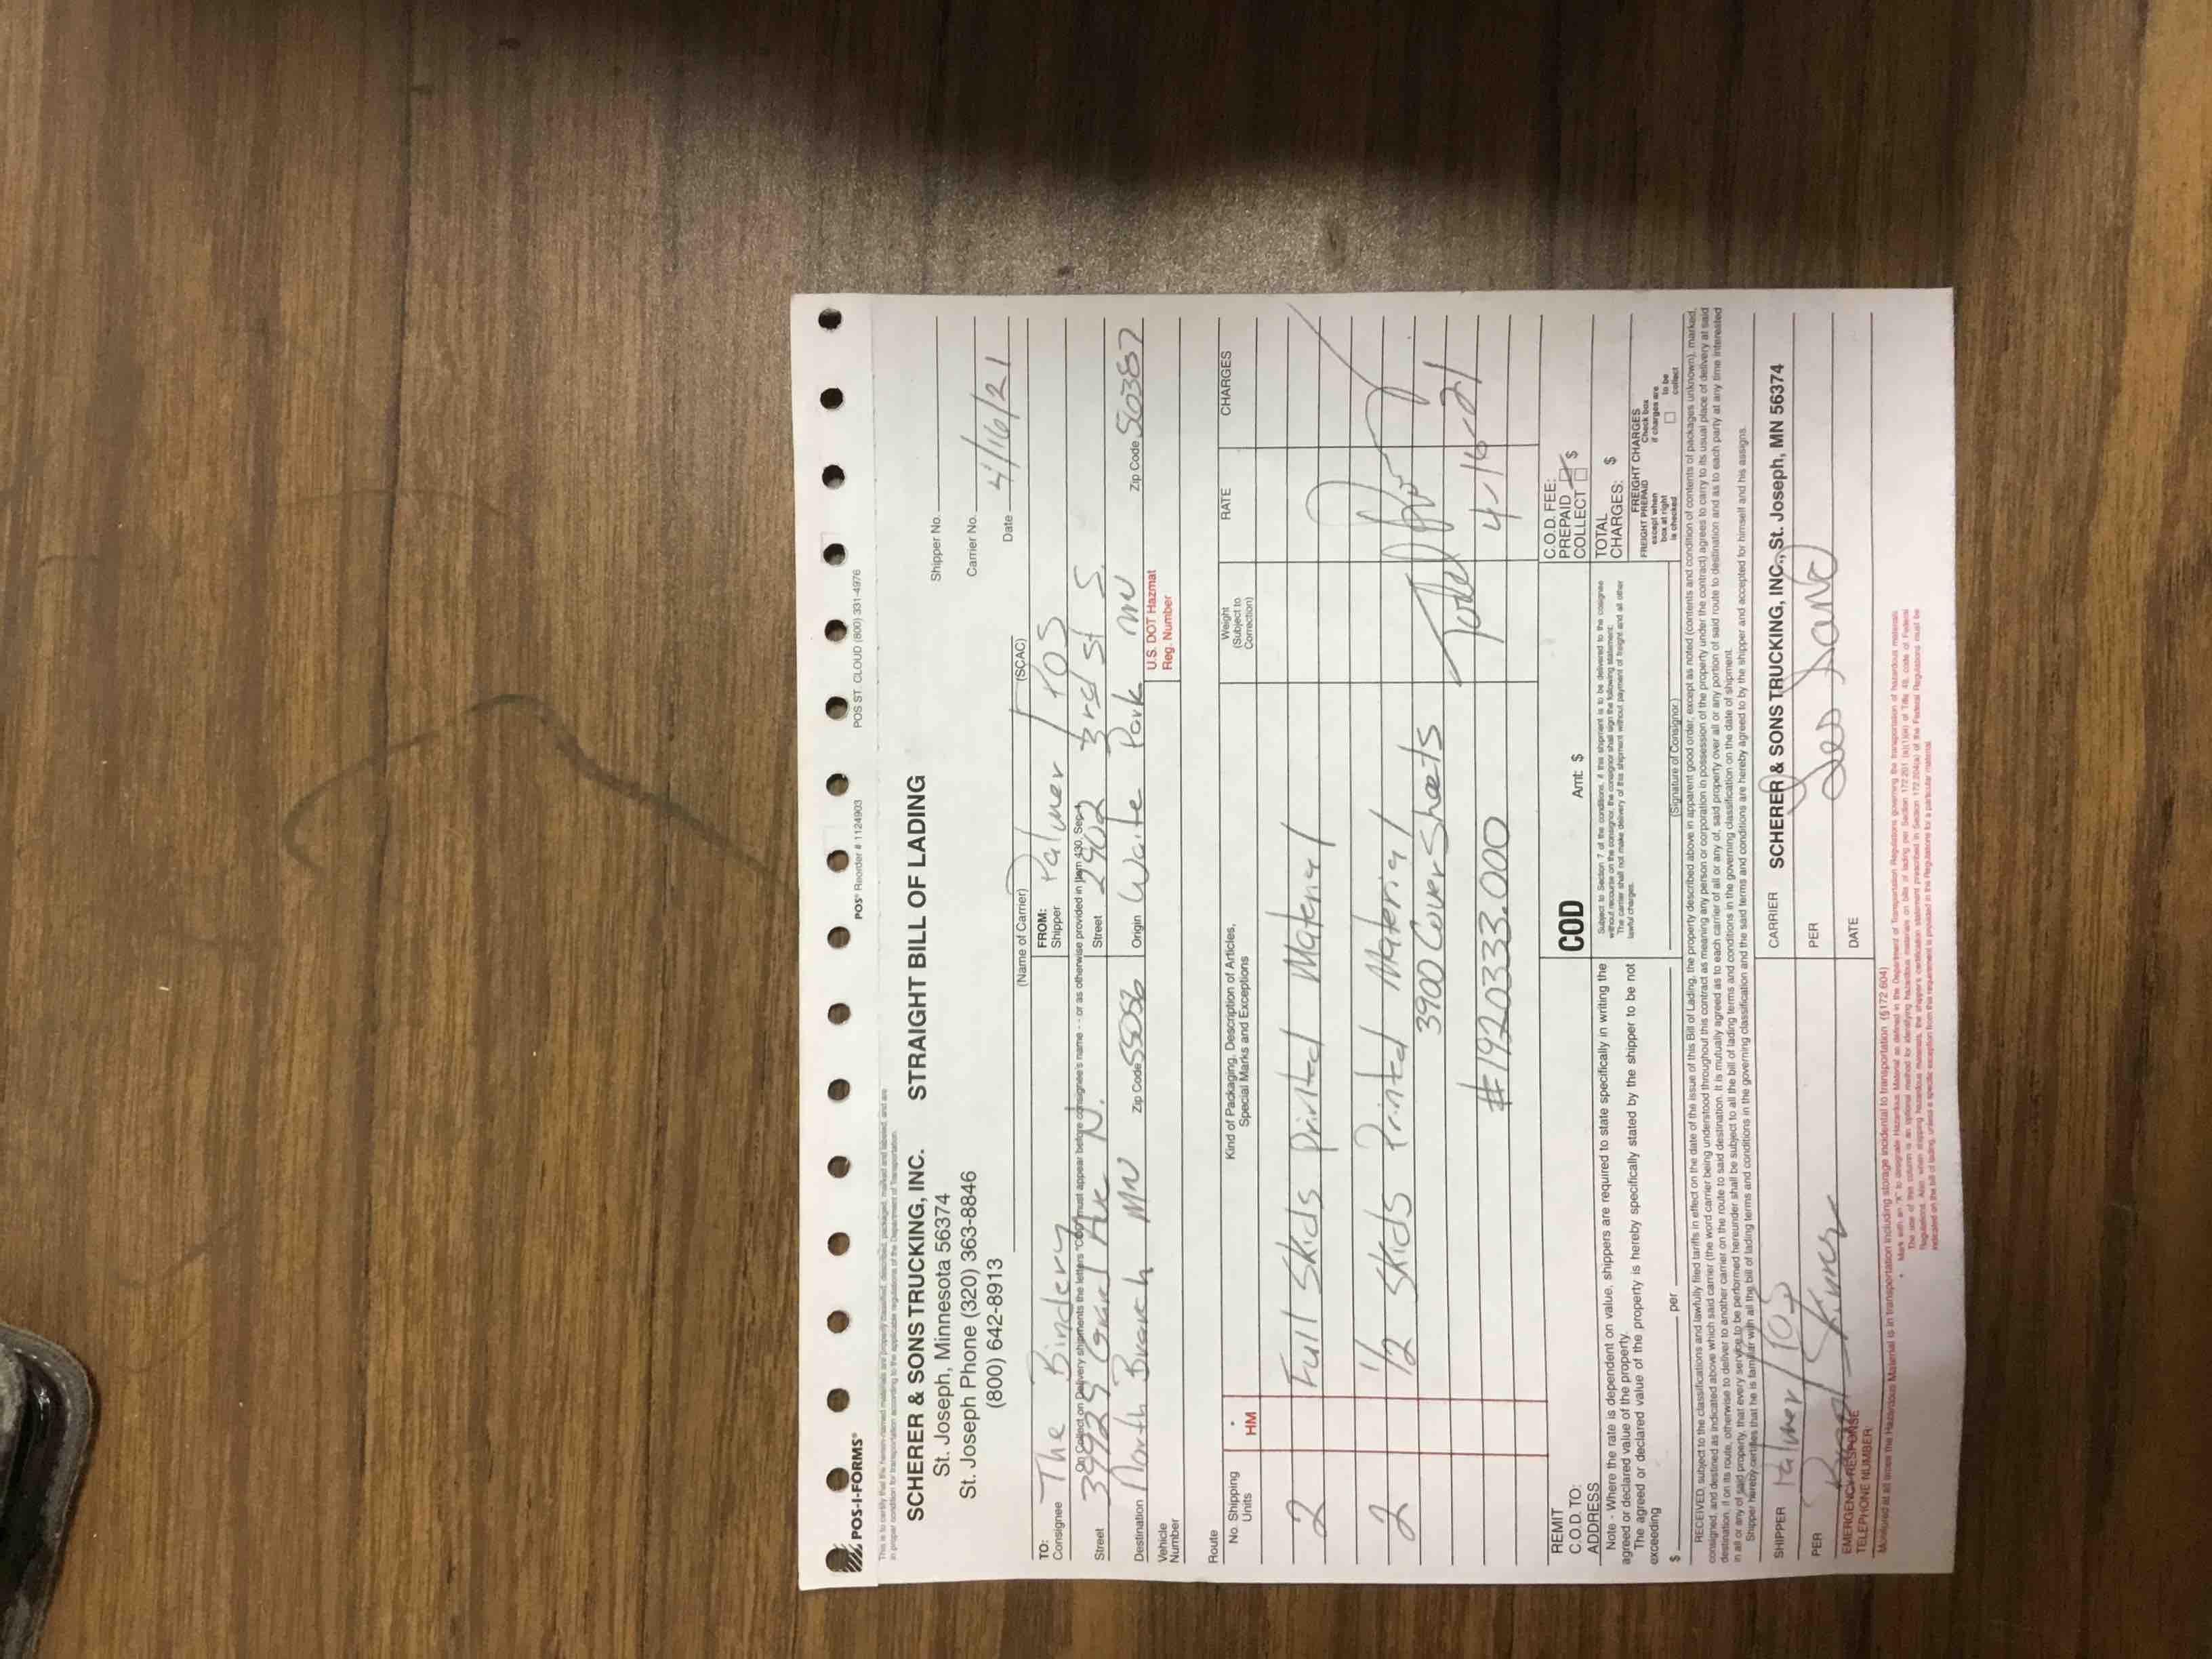 POS-I-FORMS®
POS® Reorder # 1124903
POS ST. CLOUD (800) 331-4976
This is to certify that the herein named materials are properly classified, described, packaged, marked and labeled, and are
in proper condition for transportation according to the applicable regulations of the Department of Transportation.
SCHERER & SONS TRUCKING, INC.
STRAIGHT BILL OF LADING
St. Joseph, Minnesota 56374
St. Joseph Phone (320) 363-8846
(800) 642-8913
Shipper No.
Carrier No.
Date 4/16/21
(Name of Carrier)
(SCAC)
TO:
Consignee The Bindery
FROM:
Shipper Palmer / POS
On Collect on Delivery shipments the letters "COD" must appear before consignee's name - - or as otherwise provided in Item 430, Sec. 1
Street 39929 Grand Ave N.
Street 2902 3rd St S.
Destination North Branch MN Zip Code 55056
Origin Waite Park MN Zip Code 56387
Vehicle
Number
U.S. DOT Hazmat
Reg. Number
Route
No. Shipping
Units
*
HM
Kind of Packaging, Description of Articles,
Special Marks and Exceptions
Weight
(Subject to
Correction)
RATE
CHARGES
2 Full Skids Printed Material
2 1/2 Skids Printed Material
3900 Cover Sheets
#1920333.000
4-16-21
REMIT
C.O.D. TO:
ADDRESS
COD Amt: $
C.O.D. FEE:
PREPAID
COLLECT $
Note - Where the rate is dependent on value, shippers are required to state specifically in writing the
agreed or declared value of the property.
The agreed or declared value of the property is hereby specifically stated by the shipper to be not
exceeding
$ per
Subject to Section 7 of the conditions, if this shipment is to be delivered to the consignee
without recourse on the consignor, the consignor shall sign the following statement:
The carrier shall not make delivery of this shipment without payment of freight and all other
lawful charges.
(Signature of Consignor)
TOTAL
CHARGES: $
FREIGHT CHARGES
FREIGHT PREPAID
except when
box at right
is checked
Check box
if charges are
to be
collect
RECEIVED, subject to the classifications and lawfully filed tariffs in effect on the date of the issue of this Bill of Lading, the property described above in apparent good order, except as noted (contents and condition of contents of packages unknown), marked,
consigned, and destined as indicated above which said carrier (the word carrier being understood throughout this contract as meaning any person or corporation in possession of the property under the contract) agrees to carry to its usual place of delivery at said
destination, if on its route, otherwise to deliver to another carrier on the route to said destination. It is mutually agreed as to each carrier of all or any of, said property over all or any portion of said route to destination and as to each party at any time interested
in all or any of said property, that every service to be performed hereunder shall be subject to all the bill of lading terms and conditions in the governing classification on the date of shipment.
Shipper hereby certifies that he is familiar with all the bill of lading terms and conditions in the governing classification and the said terms and conditions are hereby agreed to by the shipper and accepted for himself and his assigns.
SHIPPER Palmer/POS
CARRIER SCHERER & SONS TRUCKING, INC., St. Joseph, MN 56374
PER
PER
EMERGENCY RESPONSE
TELEPHONE NUMBER:
DATE
Monitored at all times the Hazardous Material is in transportation including storage incidental to transportation (§172.604)
* Mark with an "X" to designate Hazardous Material as defined in the Department of Transportation Regulations governing the transportation of hazardous materials.
The use of this column is an optional method for identifying hazardous materials on bills of lading per Section 172.201 (a)(1)(iii) of Title 49, code of Federal
Regulations. Also, when shipping hazardous materials, the shipper's certification statement prescribed in Section 172.204(a) of the Federal Regulations must be
indicated on the bill of lading, unless a specific exception from this requirement is provided in the Regulations for a particular material.